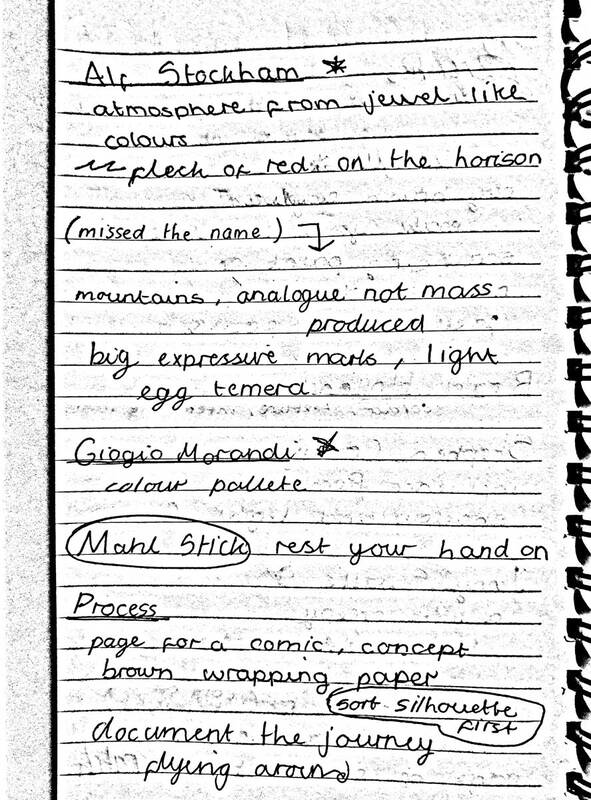 Alf Stockham *
atmosphere from jewel like
colours
fleck of red on the horison
(missed the name)
mountains, analogue not mass
produced
big expressive marks, light
egg temera
Giogio Morandi *
colour pallete
Mahl Stick rest your hand on
Process
page for a comic, concept
brown wrapping paper
sort silhouette
first
document the journey
flying around